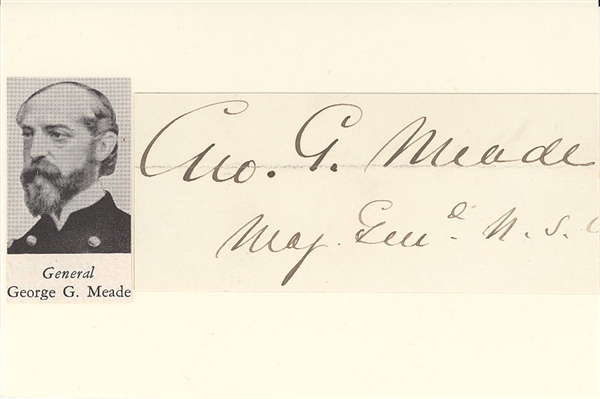 General
George G. Meade
Geo. G. Meade
Maj. Genl. U. S.